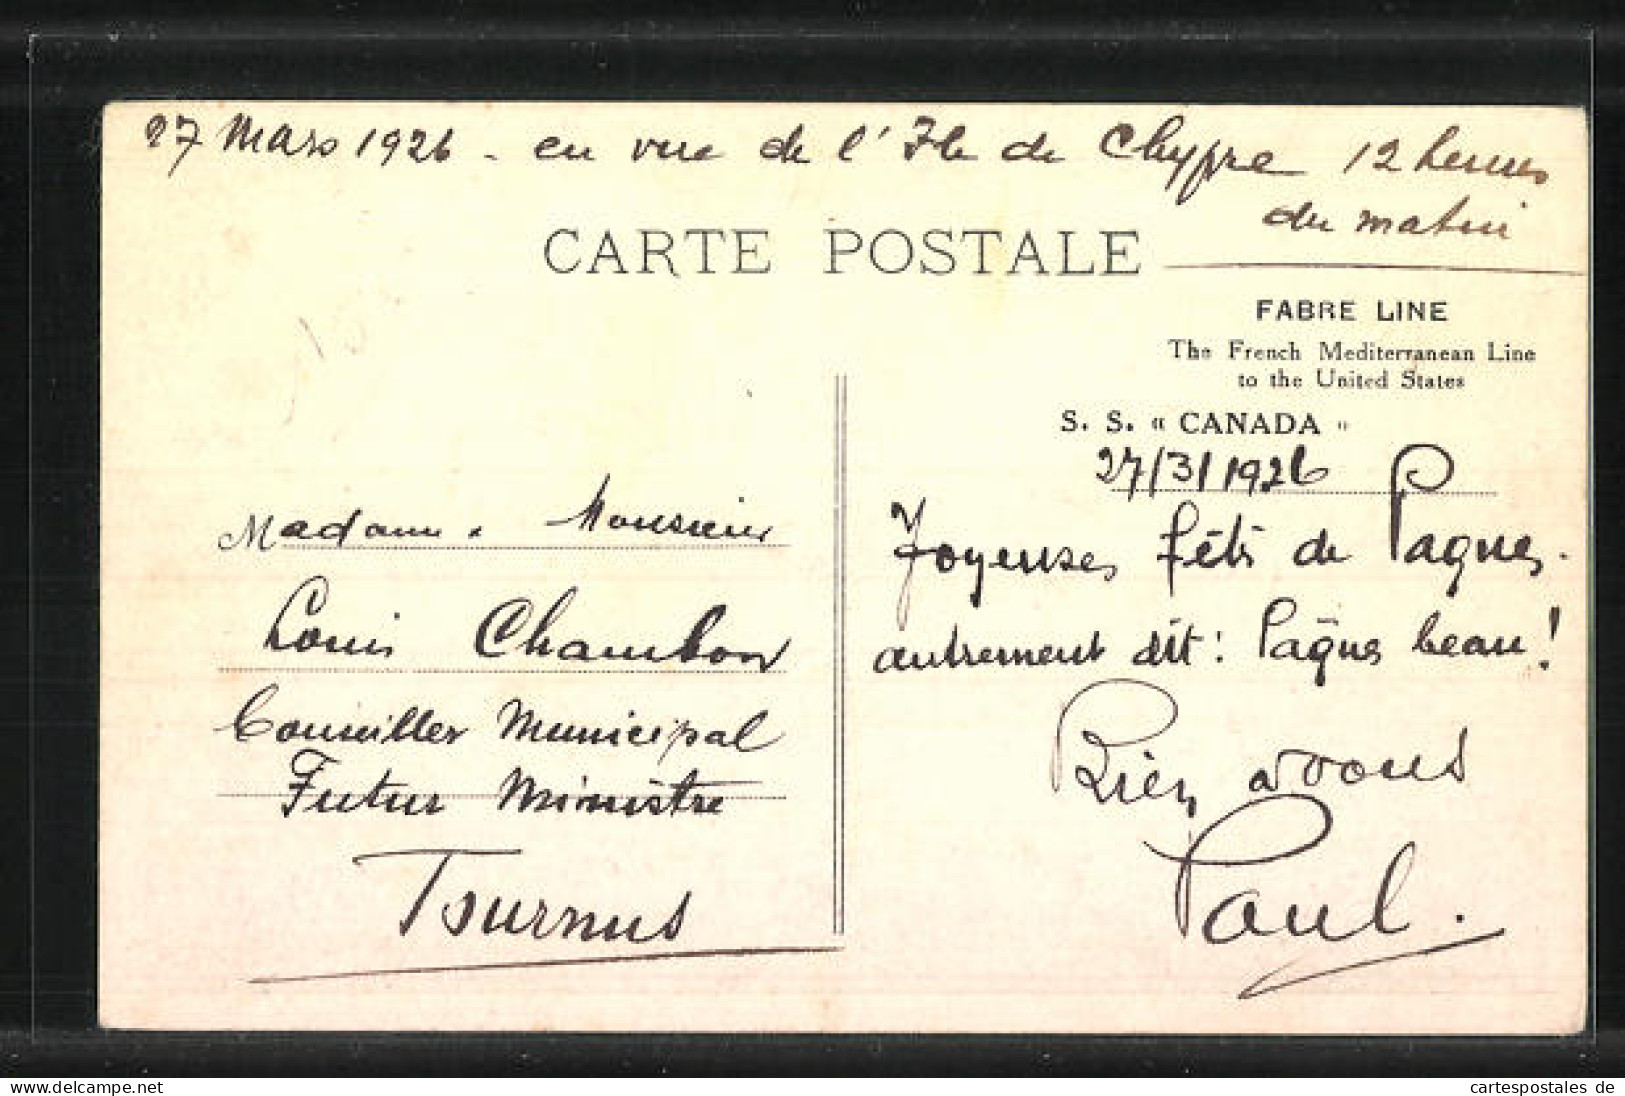 27 Mars 1926 - en vue de l'Ile de Chypre 12 heures
du matin
CARTE POSTALE
FABRE LINE
The French Mediterranean Line
to the United States
S. S. « CANADA »
27/3/1926
Joyeuses fêtes de Pâques.
autrement dit: Pâques beau!
Bien à vous
Paul.
Madame. Monsieur
Louis Chambon
Conseiller Municipal
Futur Ministre
Tournus
www.delcampe.net
cartespostales de